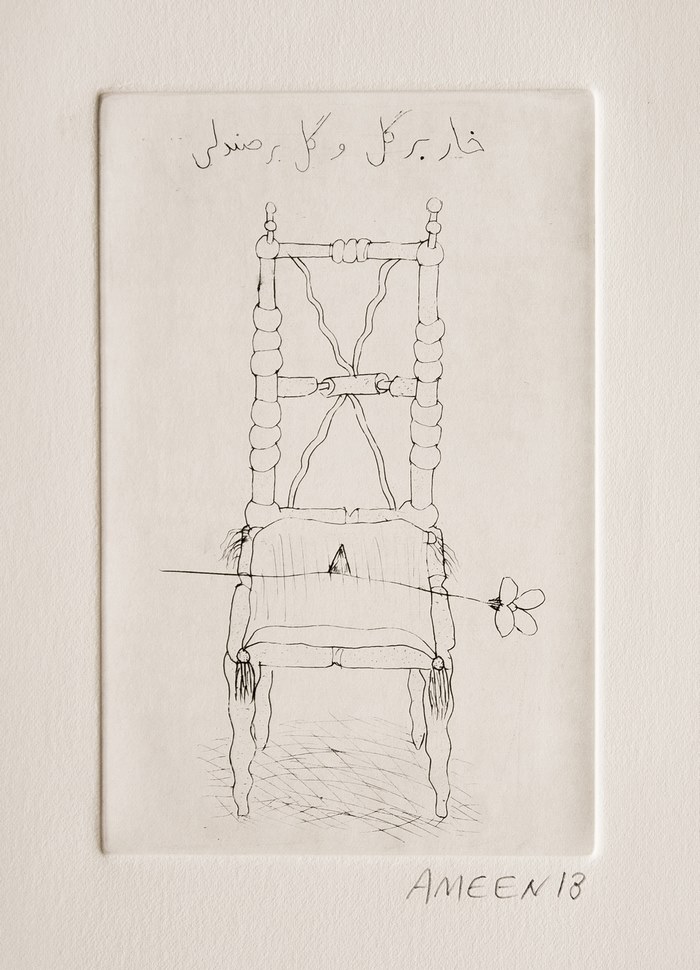 خار بر گل و گل بر صندلی
AMEEN 13